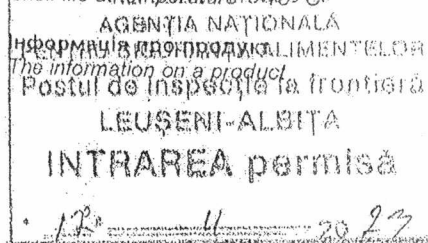 AGENȚIA NAȚIONALĂ
Інформація про продукт
ALIMENTELOR
The information on a product
Postul de inspecție la frontieră
LEUȘENI-ALBIȚA
INTRAREA permisă
12 11 2023